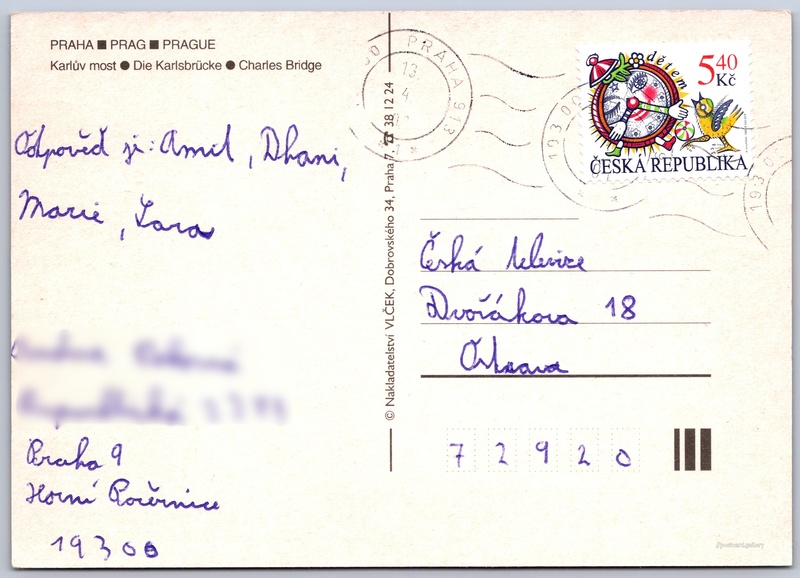 PRAHA ■ PRAG ■ PRAGUE
Karlův most ● Die Karlsbrücke ● Charles Bridge
Odpověď zi: Amil, Dhani,
Marie, Lara
Praha 9
Horní Počernice
19300
© Nakladatelství VLČEK, Dobrovského 34, Praha 7 ☎ 38 12 24
PRAHA 913
13
4
dětem
540
Kč
ČESKÁ REPUBLIKA
Česká televize
Dvořákova 18
Ostrava
72920